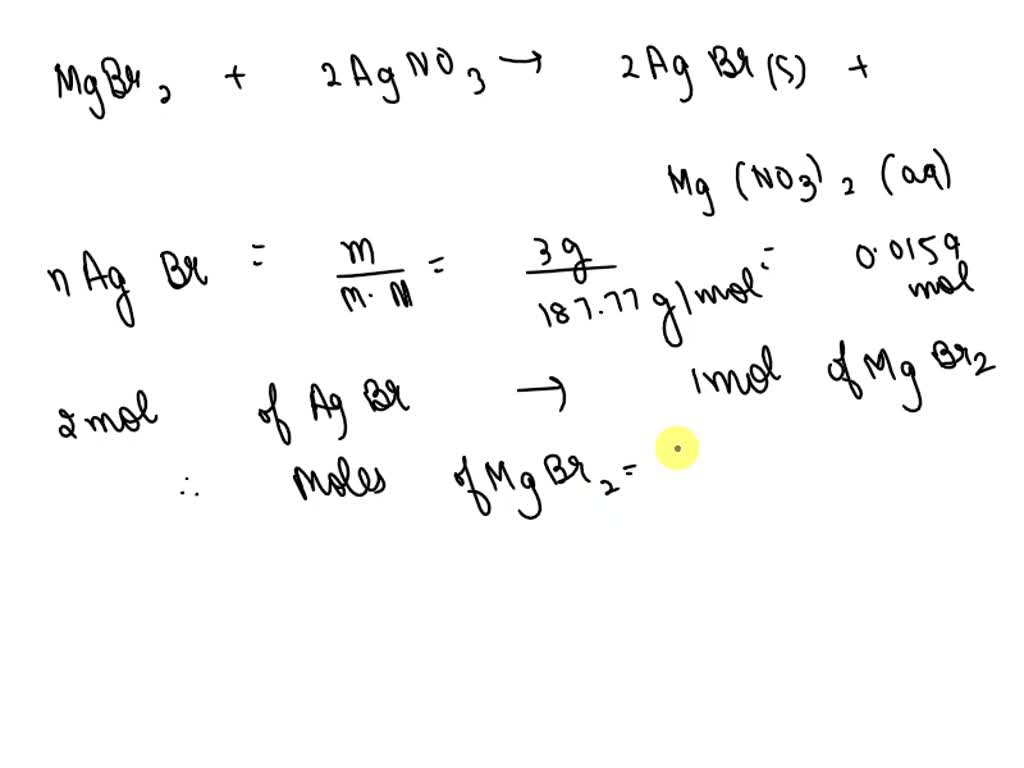 MgBr2 + 2AgNO3 → 2AgBr(s) +
Mg(NO3)2 (aq)
nAgBr = m/m.M = 3g/187.77 g/mol = 0.0159 mol
2mol of AgBr → 1mol of MgBr2
∴ Moles of MgBr2 =